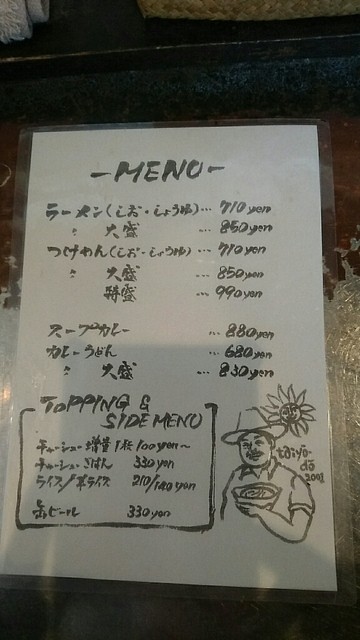 -MENU-
ラーメン(しお・しょうゆ)… 710yen
〃 大盛 … 850yen
つけめん(しお・しょうゆ)… 710yen
〃 大盛 … 850yen
特盛 … 990yen
スープカレー … 880yen
カレーうどん … 680yen
〃 大盛 … 830yen
TOPPING &
SIDE MENU
チャーシュー増量 1枚 100yen~
チャーシューごはん 330yen
ライス/半ライス 210/140yen
缶ビール 330yen
taiyo-
do
2001